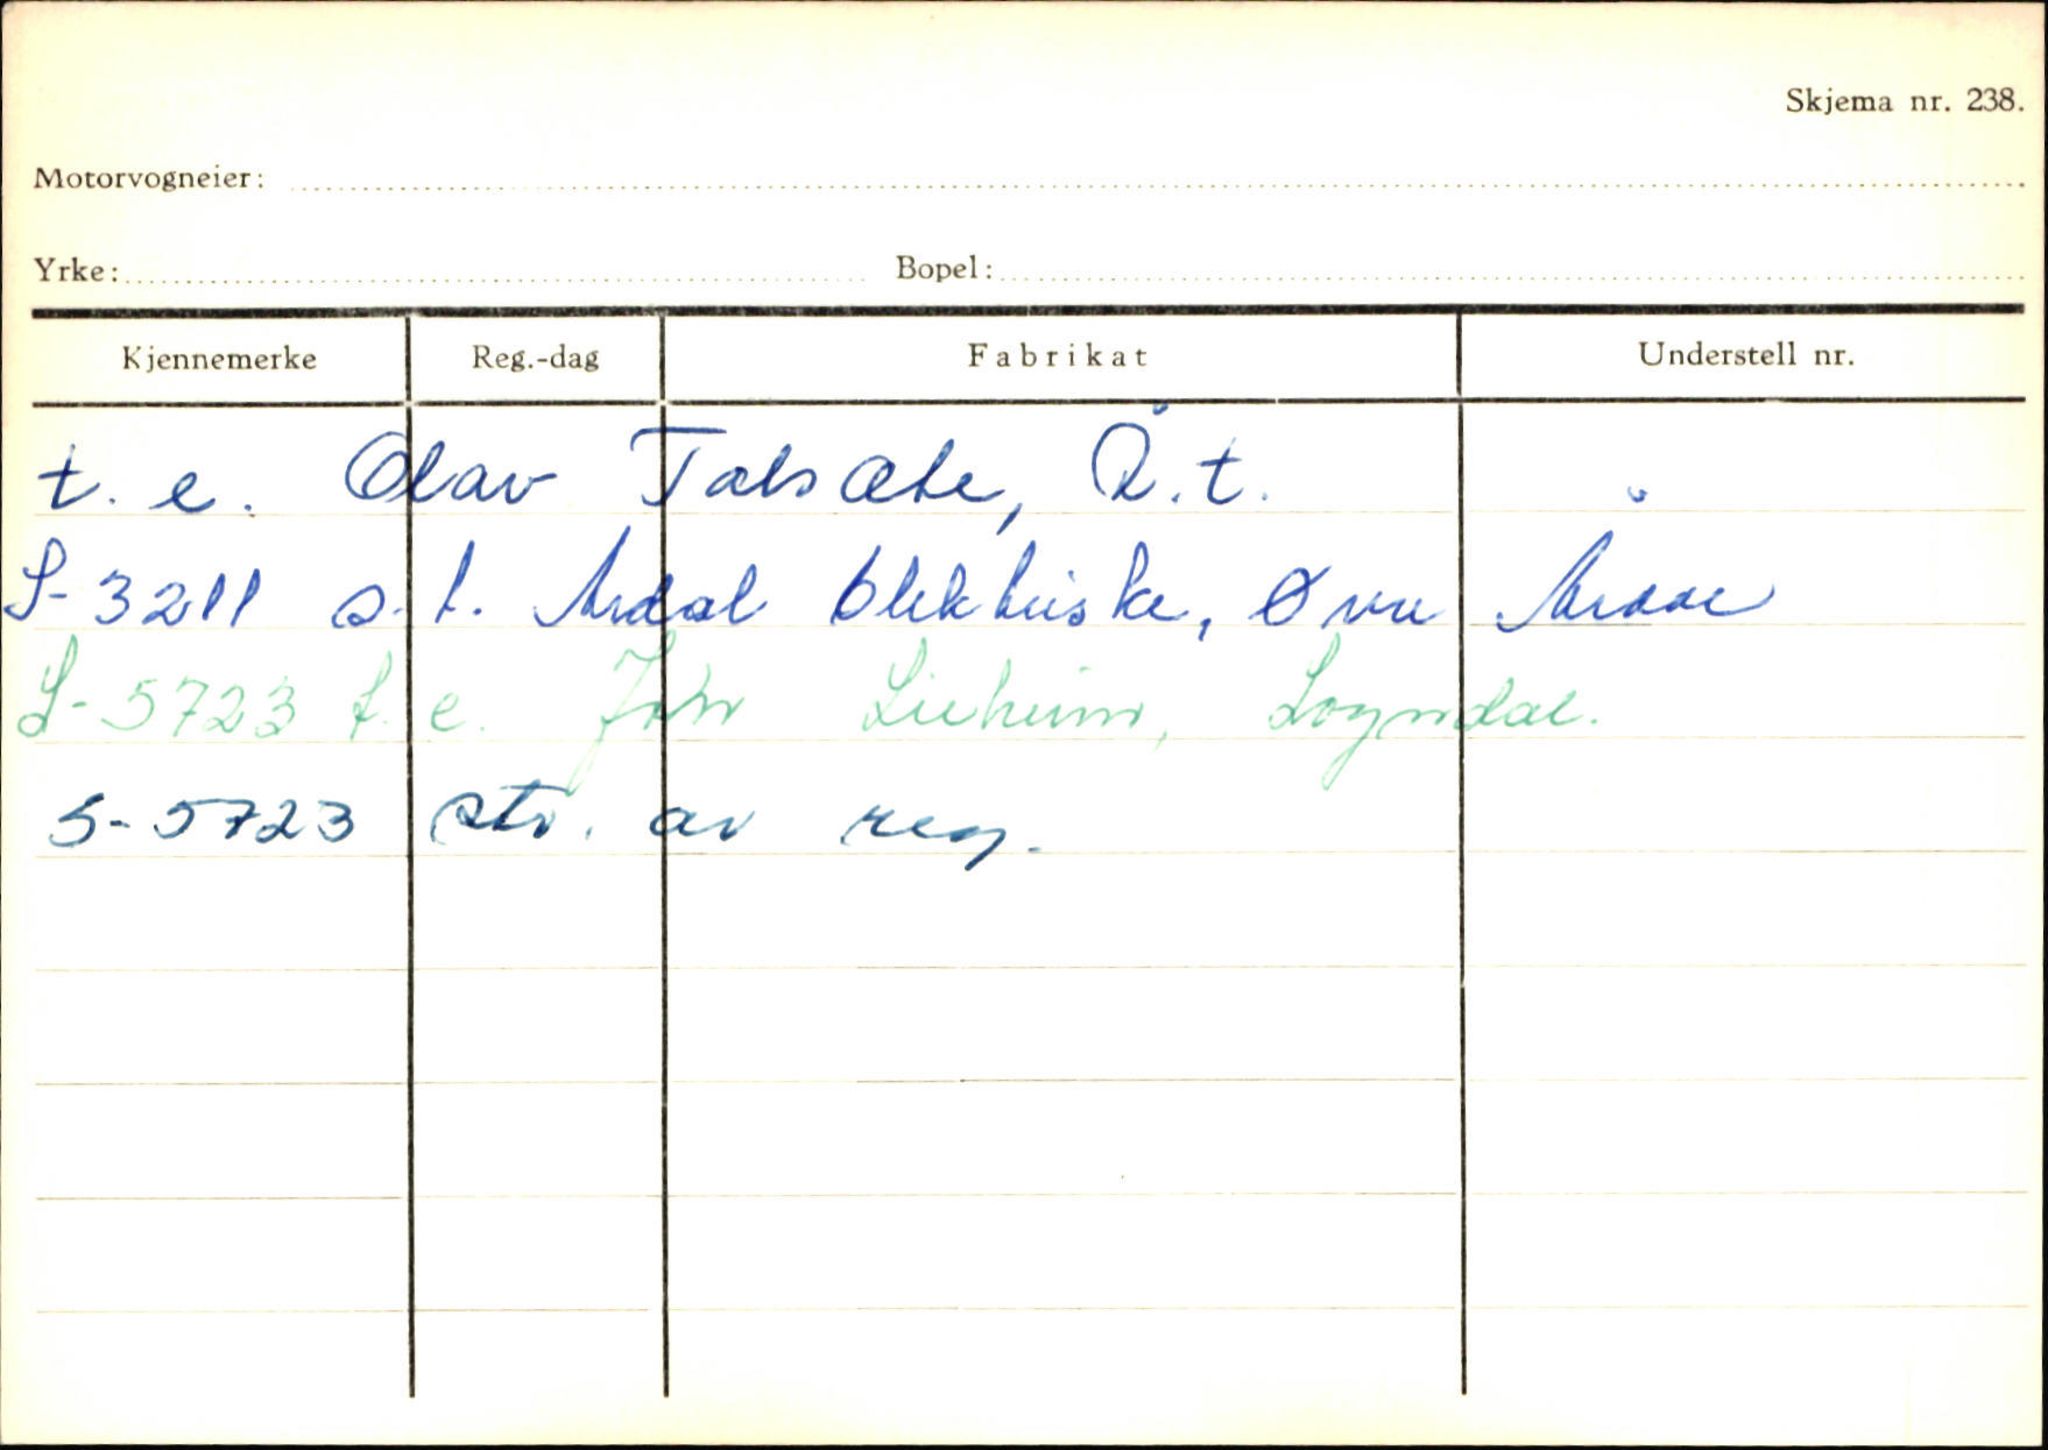 Skjema nr. 238.
Motorvogneier:
Yrke: Bopel:
Kjennemerke Reg.-dag Fabrikat Understell nr.
t. e. Olav Talsæte, Å.t.
S-3211 s. t. Årdal Øvre Årdal
S-5723 t. e. John Lieheim, Sogndal.
S-5723 str. av reg.